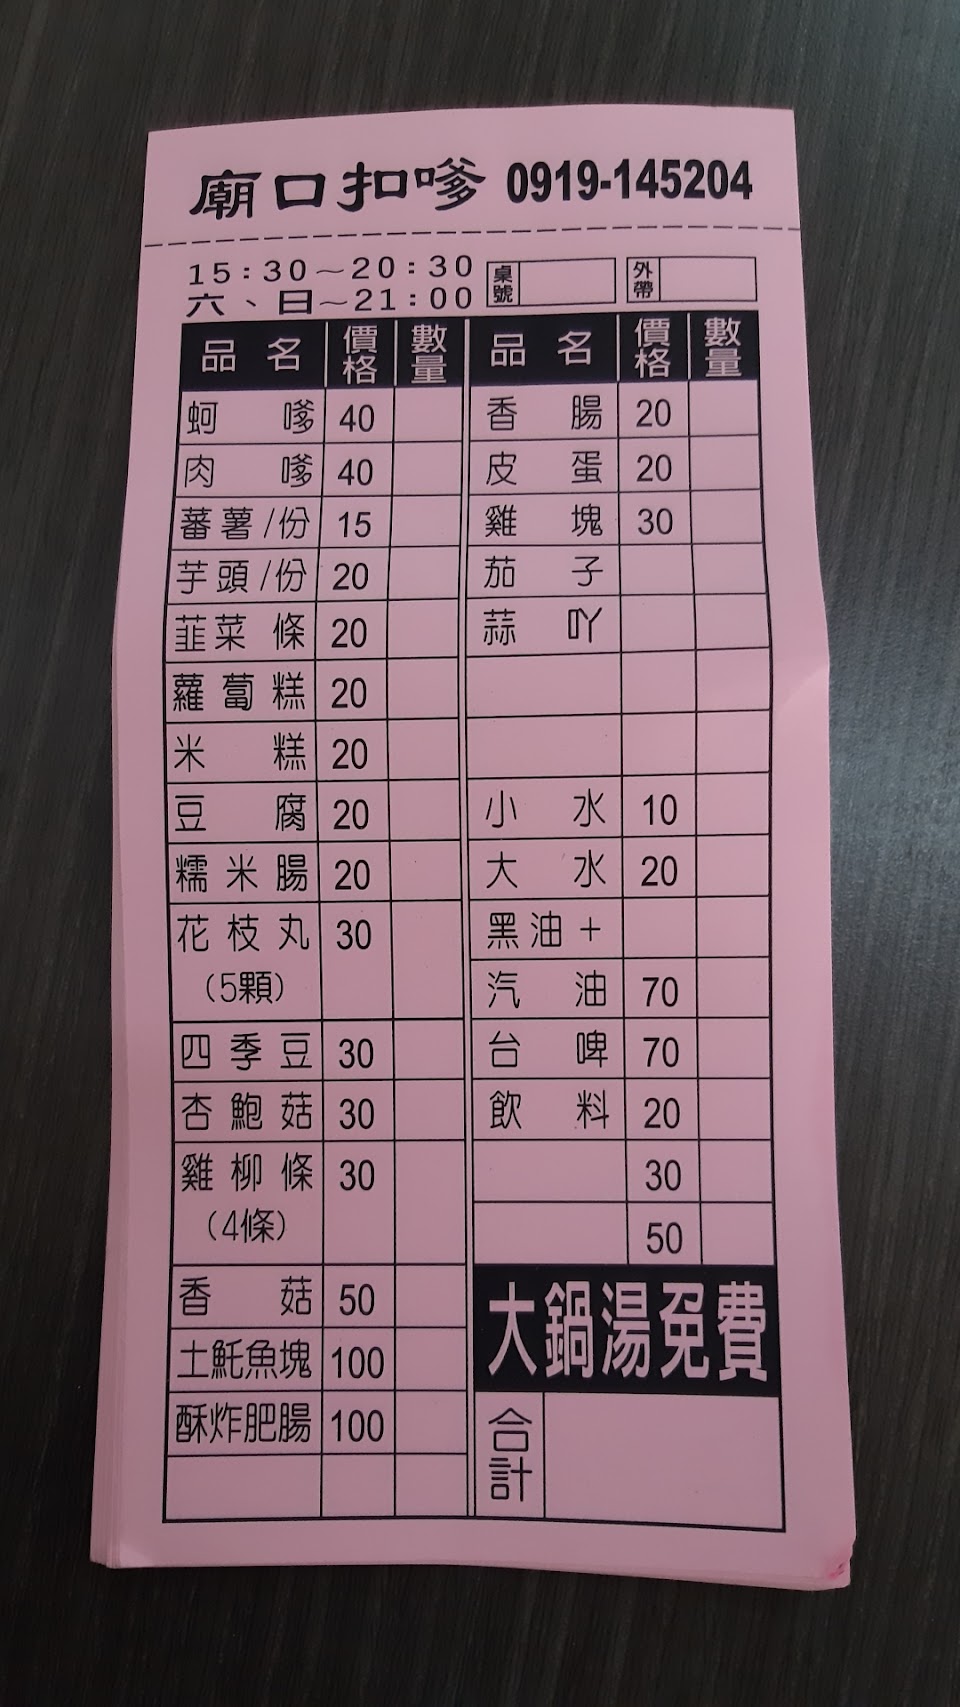 廟口扣嗲 0919-145204
15:30～20:30
六、日～21:00
桌號
外帶
品名 價格 數量
蚵嗲 40
肉嗲 40
蕃薯/份 15
芋頭/份 20
韮菜條 20
蘿蔔糕 20
米糕 20
豆腐 20
糯米腸 20
花枝丸 30
(5顆)
四季豆 30
杏鮑菇 30
雞柳條 30
(4條)
香菇 50
土魠魚塊 100
酥炸肥腸 100
品名 價格 數量
香腸 20
皮蛋 20
雞塊 30
茄子
蒜吖
小水 10
大水 20
黑油+
汽油 70
台啤 70
飲料 20
30
50
大鍋湯免費
合計